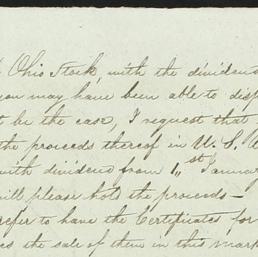 Ohio Stock, with the dividend
you may have been able to disp
t be the case, I request that
the proceeds thereof in U. S.
with dividend from 1st Januar
will please hold the proceeds—
refer to have the Certificates for
es the sale of them in this mark